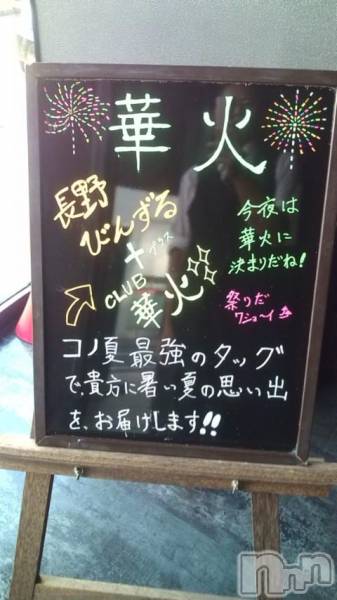 華火
長野
びんずる
+プラス
CLUB
華火
今夜は
華火に
決まりだね!
祭りだ
ワショーイ
コノ夏最強のタッグ
で、貴方に暑い夏の思い出
を、お届けします!!